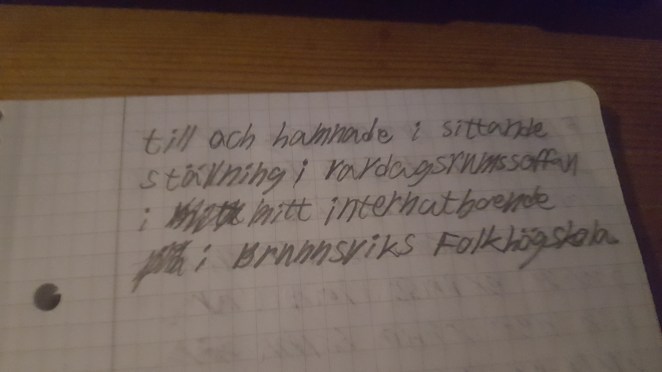 till och hamnade i sittande
ställning i vardagsrumssoffan
i mitt internatboende
i Brunnsviks Folkhögskola